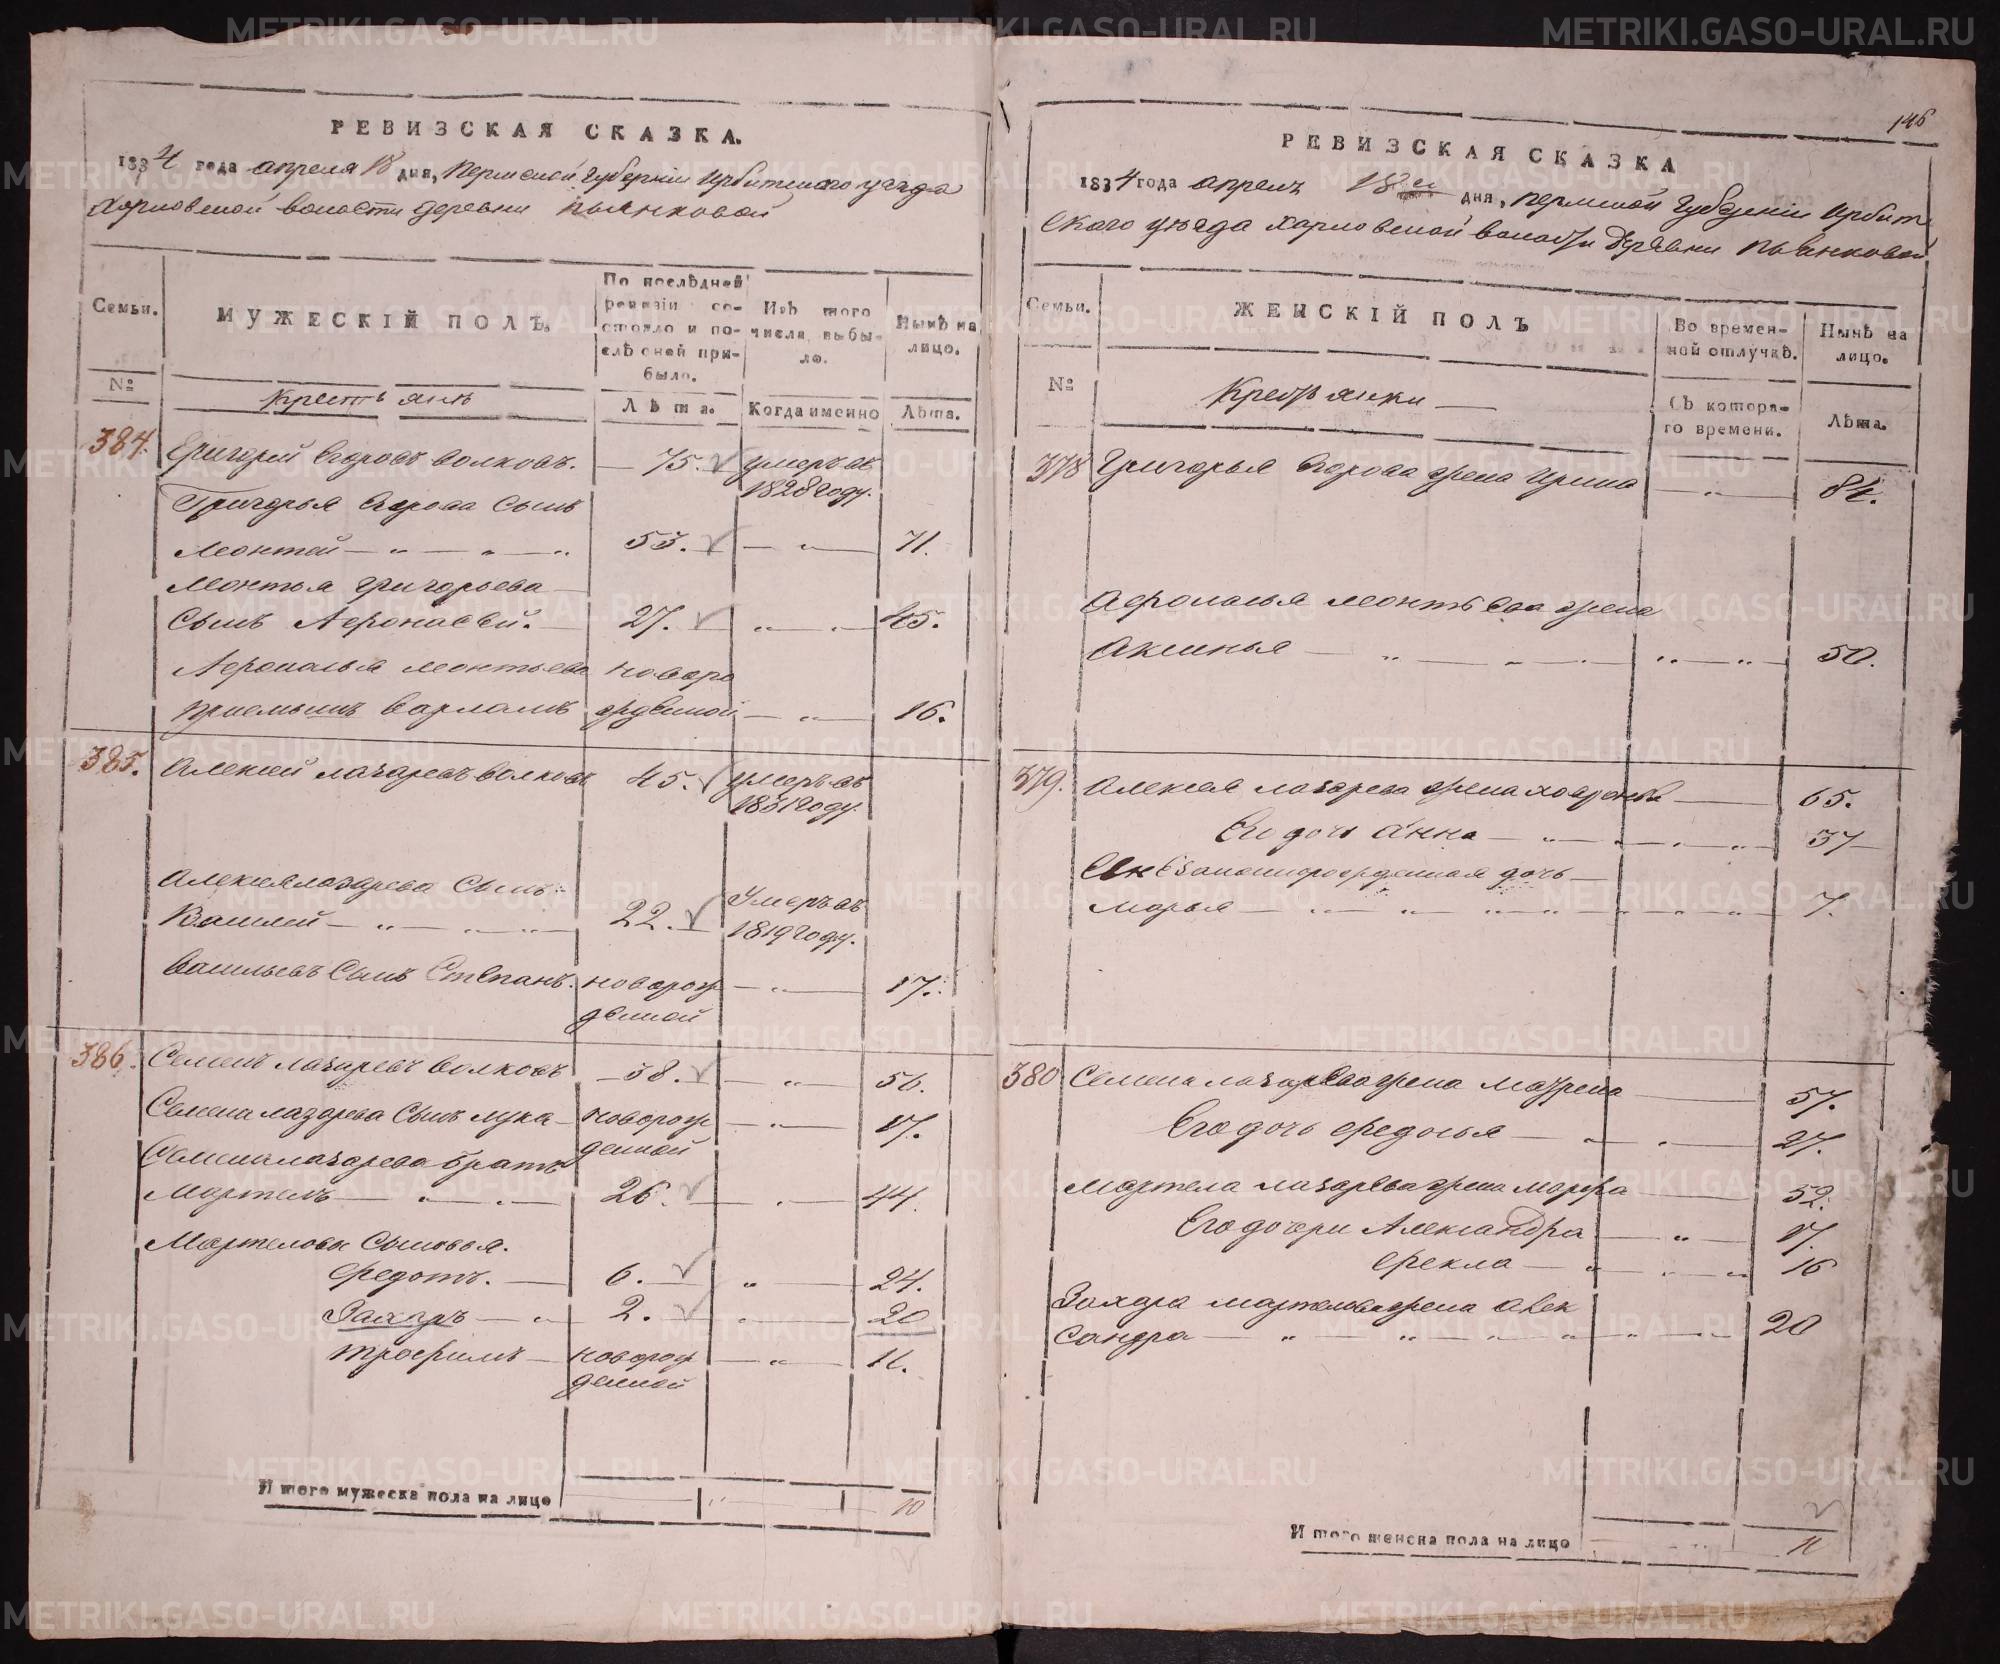 РЕВИЗСКАЯ СКАЗКА.
1834 года апреля 18 дня, Пермской Губернии Ирбитского уезда
Харловской волости деревни Пьянковой
Семьи.
МУЖЕСКІЙ ПОЛЪ.
По послѣдней ревизіи состояло и послѣ оной прибыло.
Изъ того числа выбыло.
Нынѣ на лицо.
№
Крестьянъ
Лѣта.
Когда именно
Лѣта.
384. Григорей Егоровъ Волковъ. — 75. умеръ въ 1828 году.
Григорья Егорова Сынъ
Леонтей 53. 71.
Леонтья Григорьева
Сынъ Аѳонасей. 27. 45.
Аѳонасья Леонтьева новоро
приемышъ Варламъ жденной 16.
385. Алексей Лазаревъ Волковъ 45. умеръ въ 1831 году.
Алексея Лазарева Сынъ
Василей 22. Умеръ въ 1819 году.
Васильевъ Сынъ Степанъ. новорож
денной 17.
386. Семенъ Лазаревъ Волковъ 38. 56.
Семена Лазарева Сынъ Лука новорож
денной 17.
Семена Лазарева братъ
Мартемъ 26. 44.
Мартемовы Сыновья.
Ѳедотъ. 6. 24.
Захаръ 2. 20
Трофимъ новорож
денной 11.
Итого мужеска пола на лицо 10
146
РЕВИЗСКАЯ СКАЗКА
1834 года апрель 18 дня, Пермской Губернии Ирбит
ского уезда Харловской волости Деревни Пьянковой
Семьи.
ЖЕНСКІЙ ПОЛЪ
Во временной отлучкѣ.
Нынѣ на лицо.
№
Крестьянки
Съ котораго времени.
Лѣта.
378 Григорья Егорова жена Ирина 84.
Аѳонасья Леонтьева жена
Аксинья 50.
379. Алексея Лазарева жена Ховронья 65.
Его дочь Анна 37
Ея незаконнорожденная дочь
Марья 7.
380 Семена Лазарева жена Маврена 57.
Его дочь Ѳедосья 27.
Мартема Лазарева жена Марфа 52.
Его дочери Александра 17.
Ѳекла 16
Захара Мартемьева жена Алек
сандра 20
Итого женска пола на лицо 11
METRIKI.GASO-URAL.RU